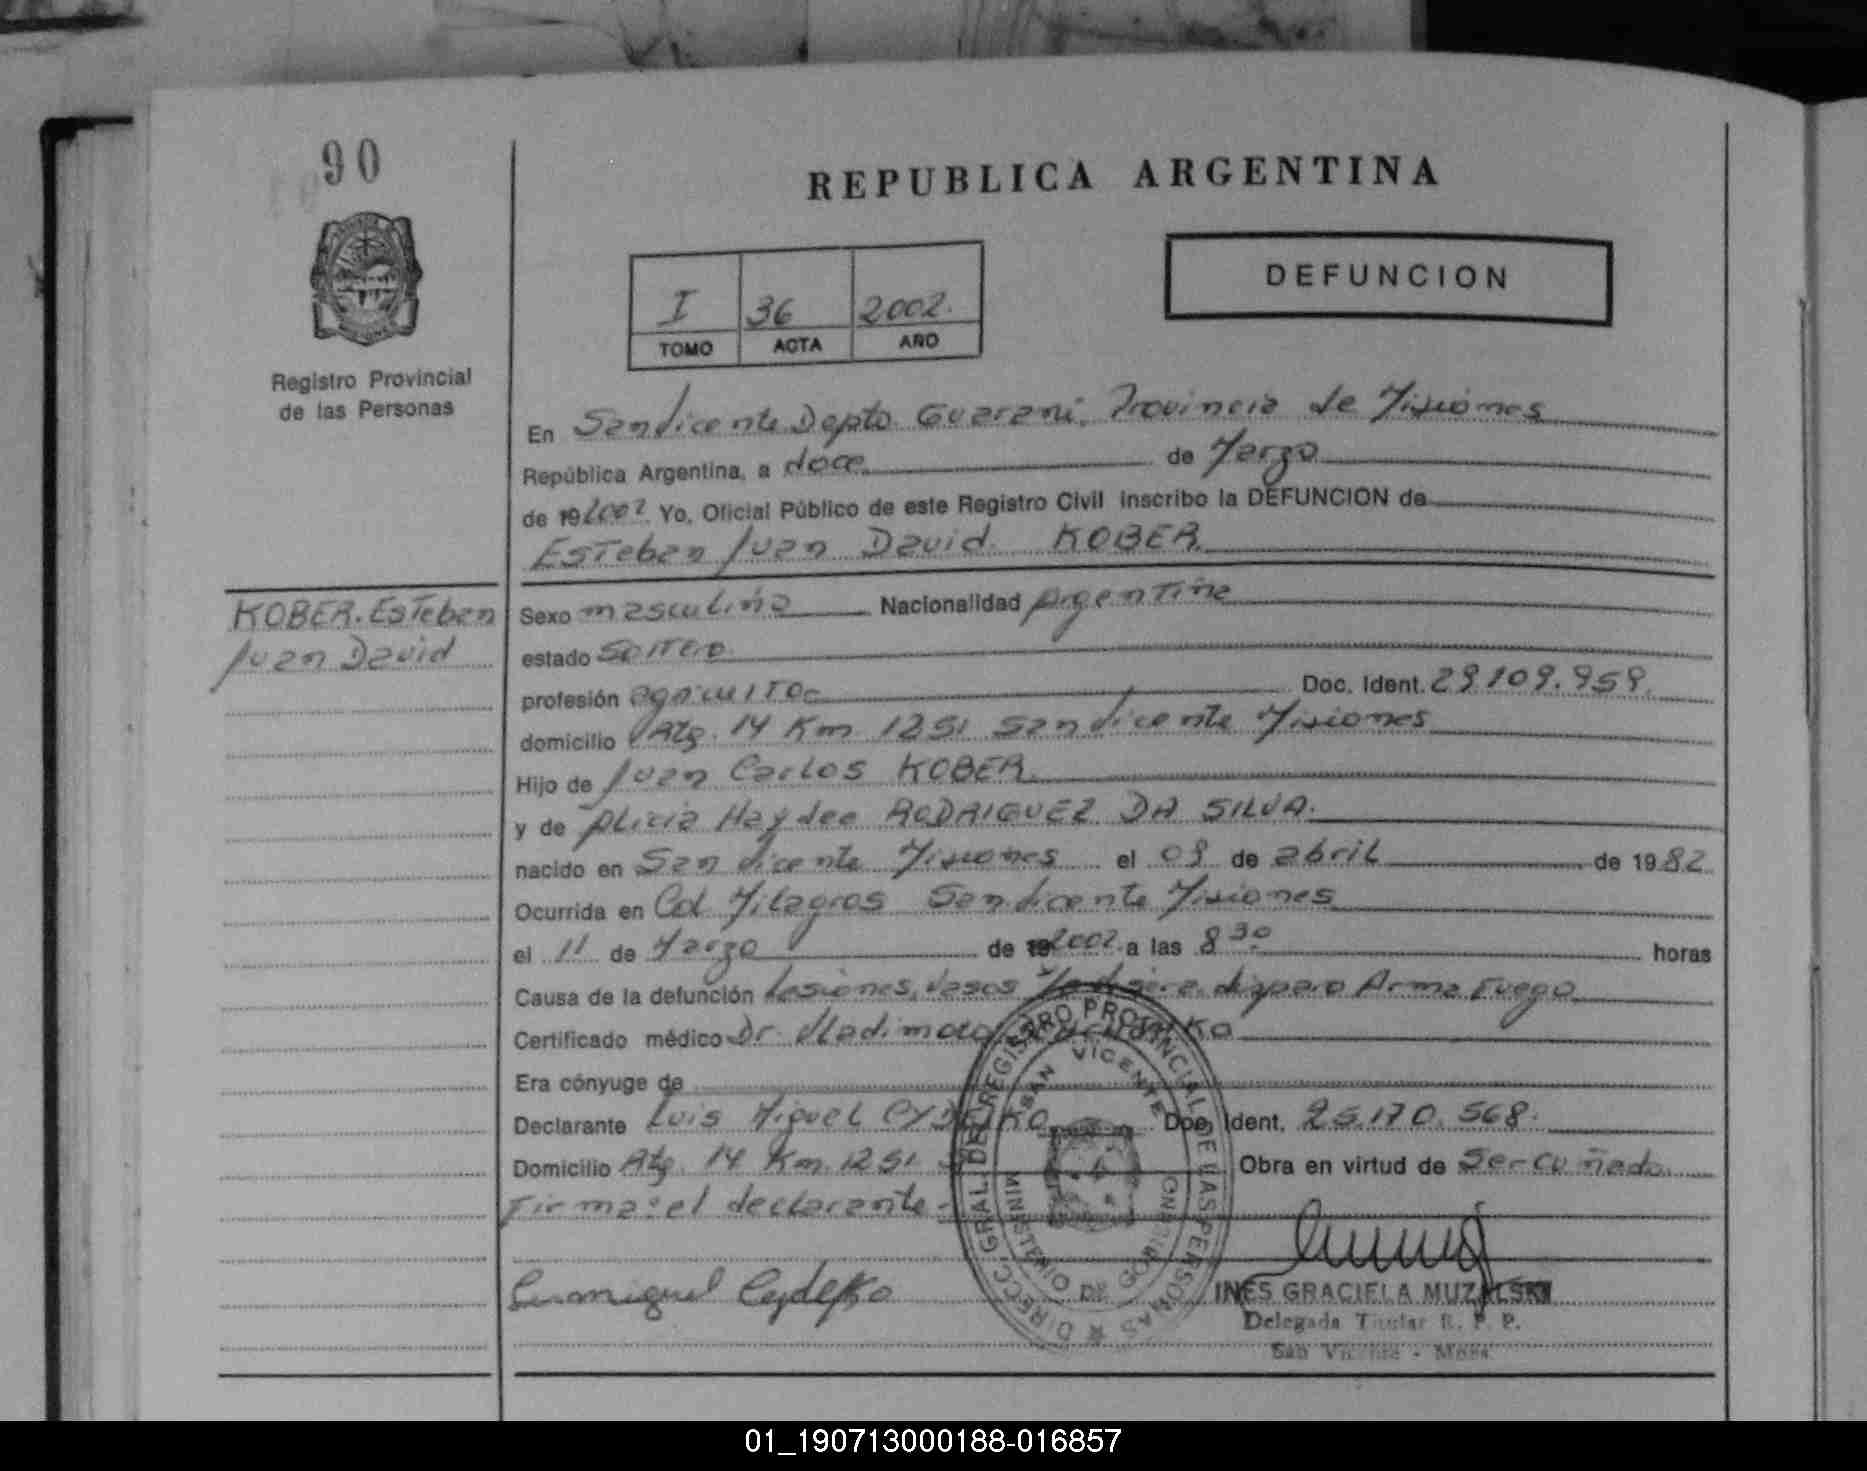 90
REPUBLICA ARGENTINA
DEFUNCION
I 36 2002.
TOMO ACTA AÑO
Registro Provincial
de las Personas
En San Vicente Depto Guarani, Provincia de Misiones
República Argentina, a doce de Marzo
de 19 2002 Yo, Oficial Público de este Registro Civil inscribo la DEFUNCION de
Esteban Juan David KOBER
KOBER. Esteban
Juan David
Sexo masculino Nacionalidad Argentina
estado soltero
profesión agricultor Doc. Ident. 29.109.959.
domicilio Ruta 14 Km 1251 San Vicente Misiones
Hijo de Juan Carlos KOBER
y de Alicia Haydee RODRIGUEZ DA SILVA.
nacido en San Vicente Misiones el 09 de abril de 1982
Ocurrida en Col Milagros San Vicente Misiones
el 11 de Marzo de 19 2002 a las 8 30 horas
Causa de la defunción Lesiones, Vasos disparo Arma Fuego
Certificado médico Dr.
Era cónyuge de
Declarante Luis Miguel Doc. Ident. 25.170.568.
Domicilio 14 Km 1251 Obra en virtud de Ser cuñado
Firma: el declarante
INES GRACIELA MUZALSKI
Delegada Titular R. P. P.
San Vicente - Mnes.
DIRECC. GRAL. DEL REGISTRO PROVINCIAL DE LAS PERSONAS
SAN VICENTE
MINISTERIO DE GOBIERNO
01_190713000188-016857